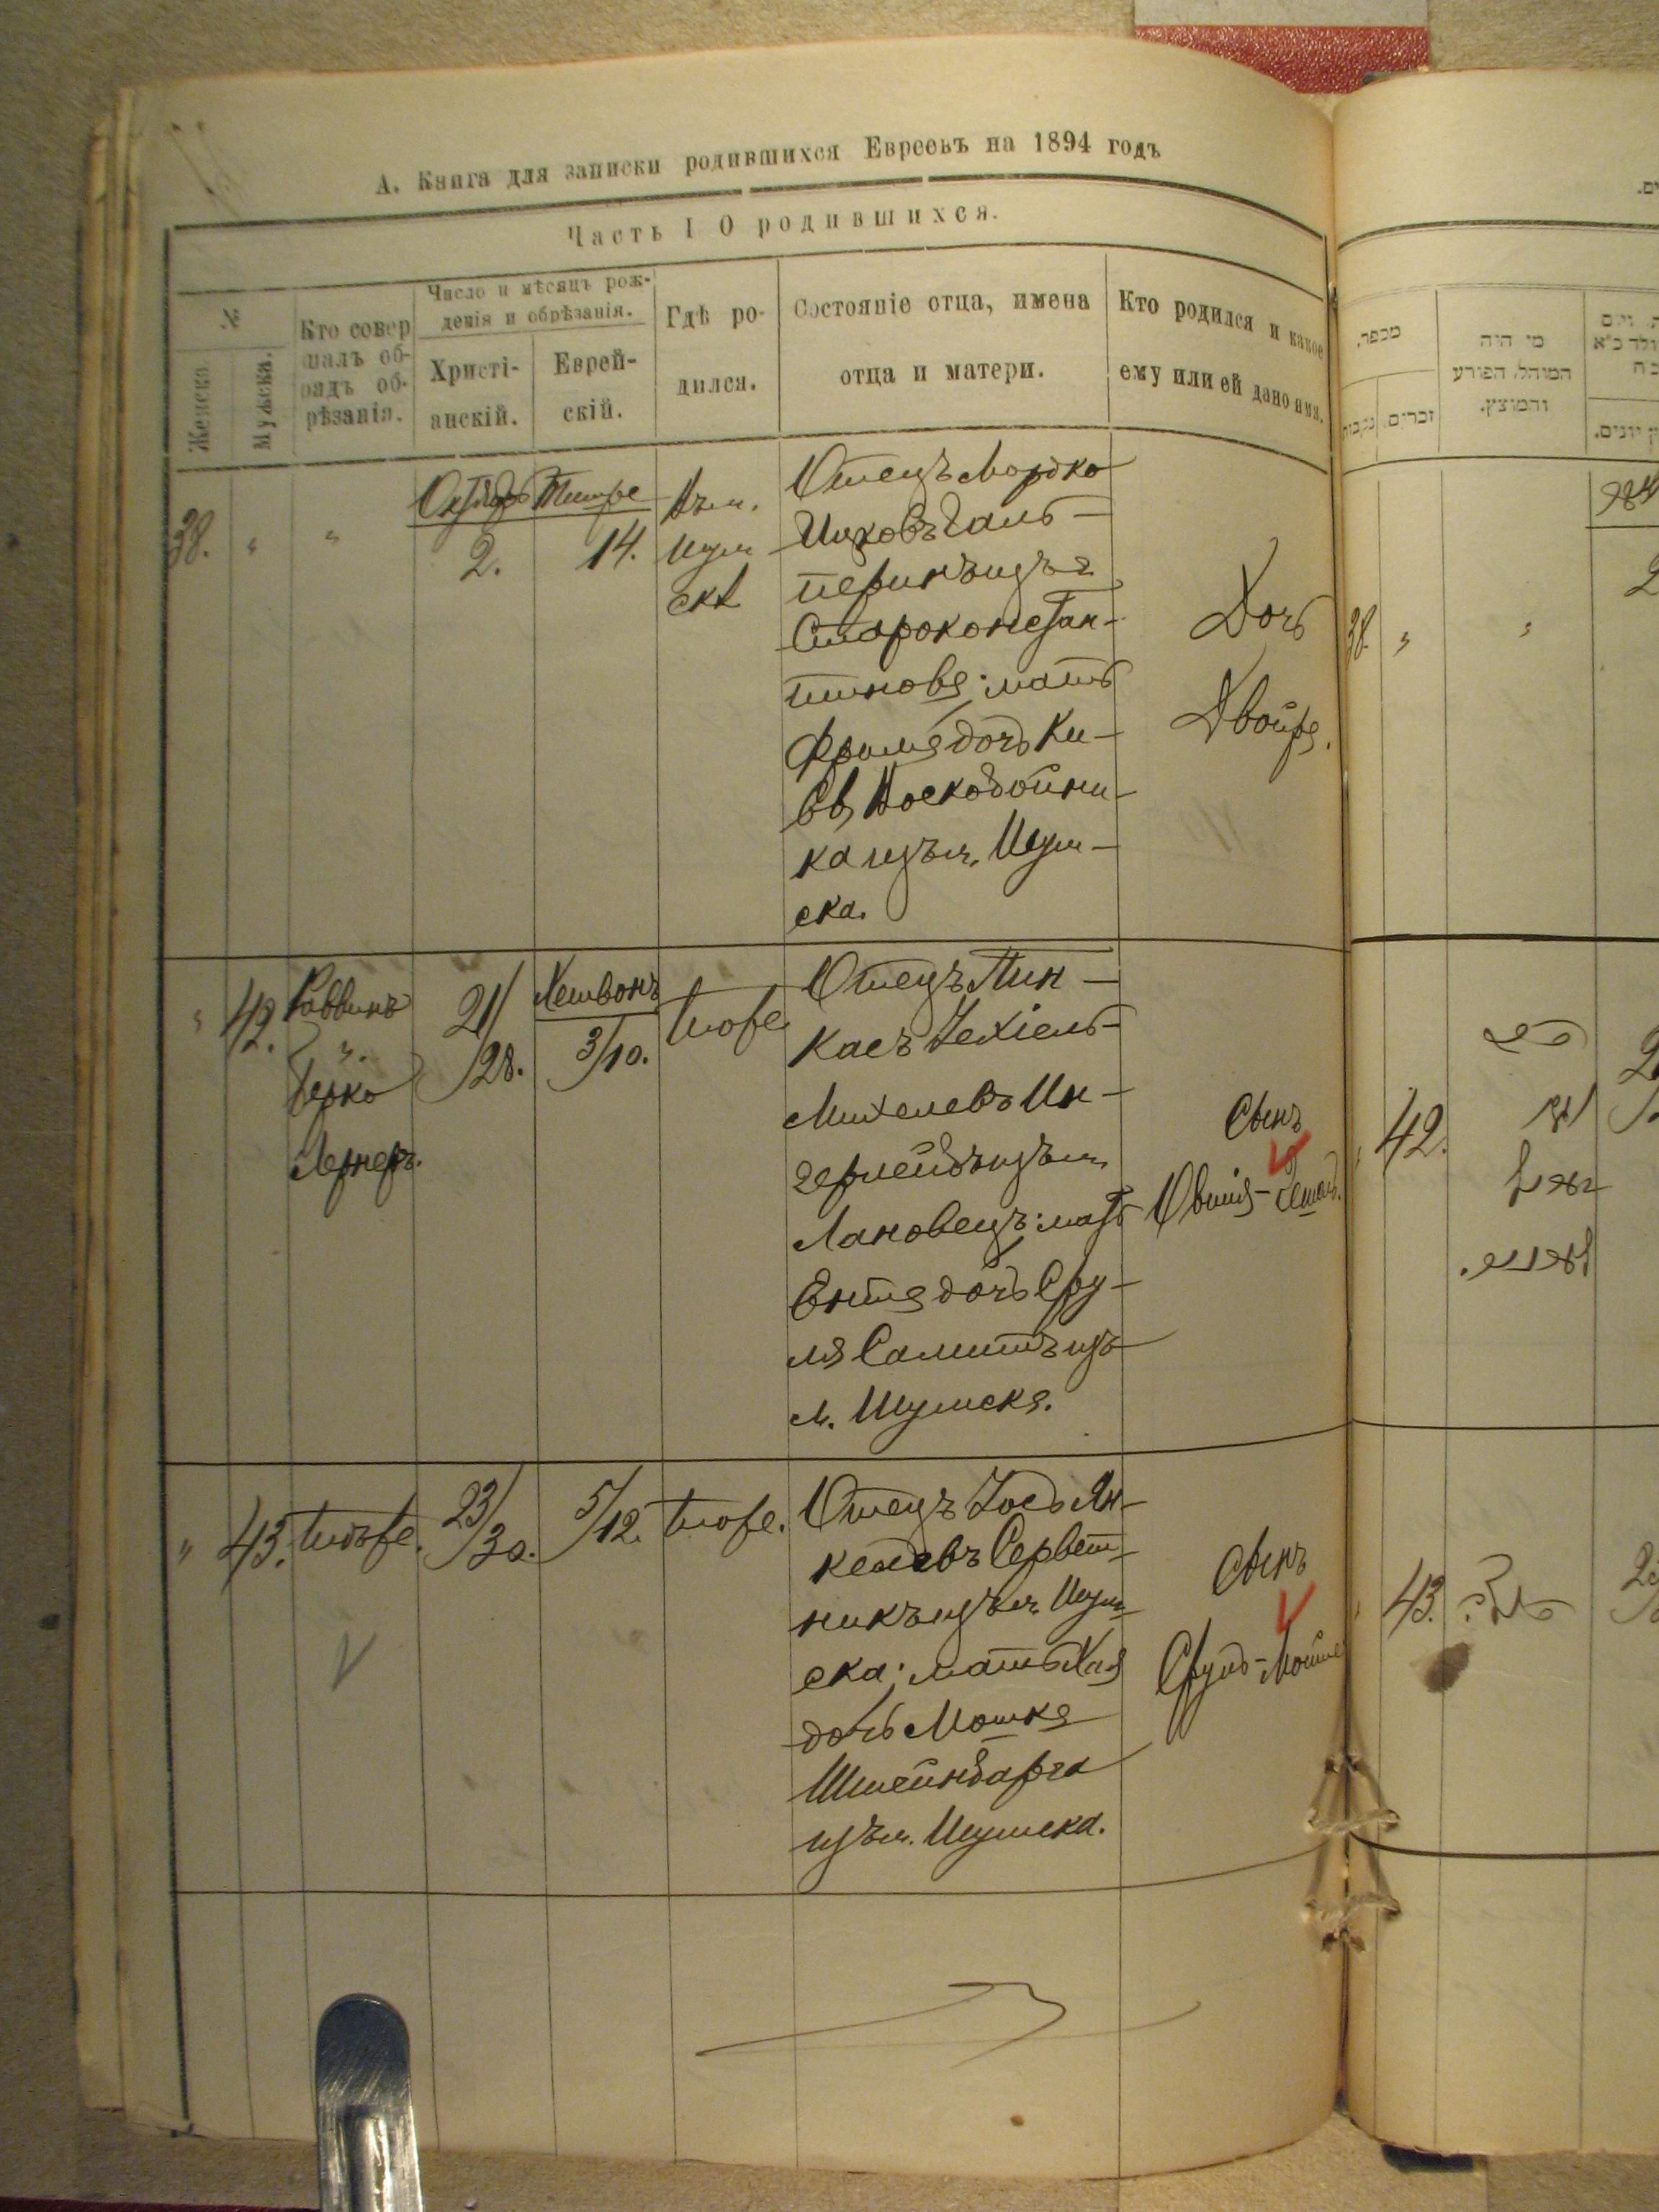 А. Книга для записки родившихся Евреевъ на 1894 годъ
Часть I О родившихся.
№
Женска.
Мужеска.
Кто совер
шалъ об-
рядъ об-
рѣзанія.
Число и мѣсяцъ рож-
денія и обрѣзанія.
Христі-
анскій.
Еврей-
скій.
Гдѣ ро-
дился.
Состояніе отца, имена
отца и матери.
Кто родился и какое
ему или ей дано имя.
38. " "
Октябрь
2.
Тишре
14.
Въ м.
Шум
скѣ
Отецъ Мордко
Ицковъ Галь-
перинъ изъ г.
Староконстан-
тинова; мать
Фрима дочь Ки-
вы Воскобойни-
ка изъ м. Шум-
ска.
Дочь
Двойра.
" 42.
Раввинъ
".
Берко
Лернеръ.
21/
/28.
Хешвонъ
3/10.
тоже
Отецъ Пин-
касъ Іехіель-
Михелевъ Ин-
герлейбъ изъ м.
Лановецъ; мать
Ентя дочь Сру-
ля
изъ
м. Шумска.
Сынъ
" 43. тоже.
23/
/30.
5/12.
тоже.
Отецъ Іось Ян-
келевъ Сервет-
никъ изъ м. Шум-
ска; мать Хая
дочь Мошка
Штейнбарга
изъ м. Шумска.
Сынъ
Сруль-Мойше
מספר.
נקבות
זכרים
מי היה
המוהל, הפורע
והמוצץ.
38. " "
42.
43.